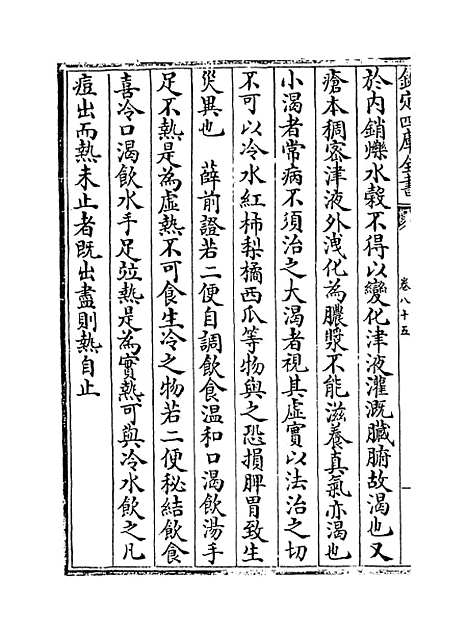 欽定四庫全書
卷八十五
於内銷爍水穀不得以變化津液灌溉臟腑故渴也又
瘡本稠宻津液外洩化為膿漿不能滋養真氣亦渴也
小渴者常病不須治之大渴者視其虚實以法治之切
不可以冷水紅柿梨橘西瓜等物與之恐損脾胃致生
災異也　薛前證若二便自調飲食温和口渴飲湯手
足不熱是為虚熱不可食生冷之物若二便秘結飲食
喜冷口渴飲水手足竝熱是為實熱可與冷水飲之凡
痘出而熱未止者既出盡則熱自止